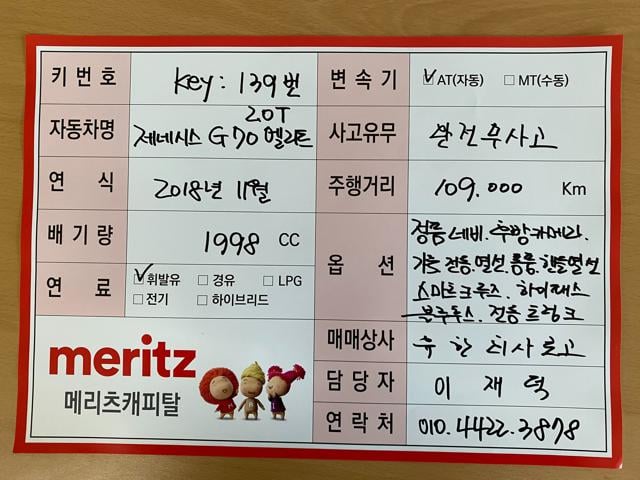 키 번 호 key : 139번
자동차명 2.0T
제네시스 G70 엘리트
연 식 2018년 11월
배 기 량 1998 CC
연 료 휘발유 경유 LPG
전기 하이브리드
meritz
메리츠캐피탈
변 속 기 AT(자동) MT(수동)
사고유무 완전무사고
주행거리 109.000 Km
옵 션 정품네비. 후방카메라.
가죽 전동.열선.통풍.핸들열선
스마트크루즈. 하이패스
블루투스. 전동트렁크
매매상사
담 당 자 이 재 덕
연 락 처 010.4422.3878